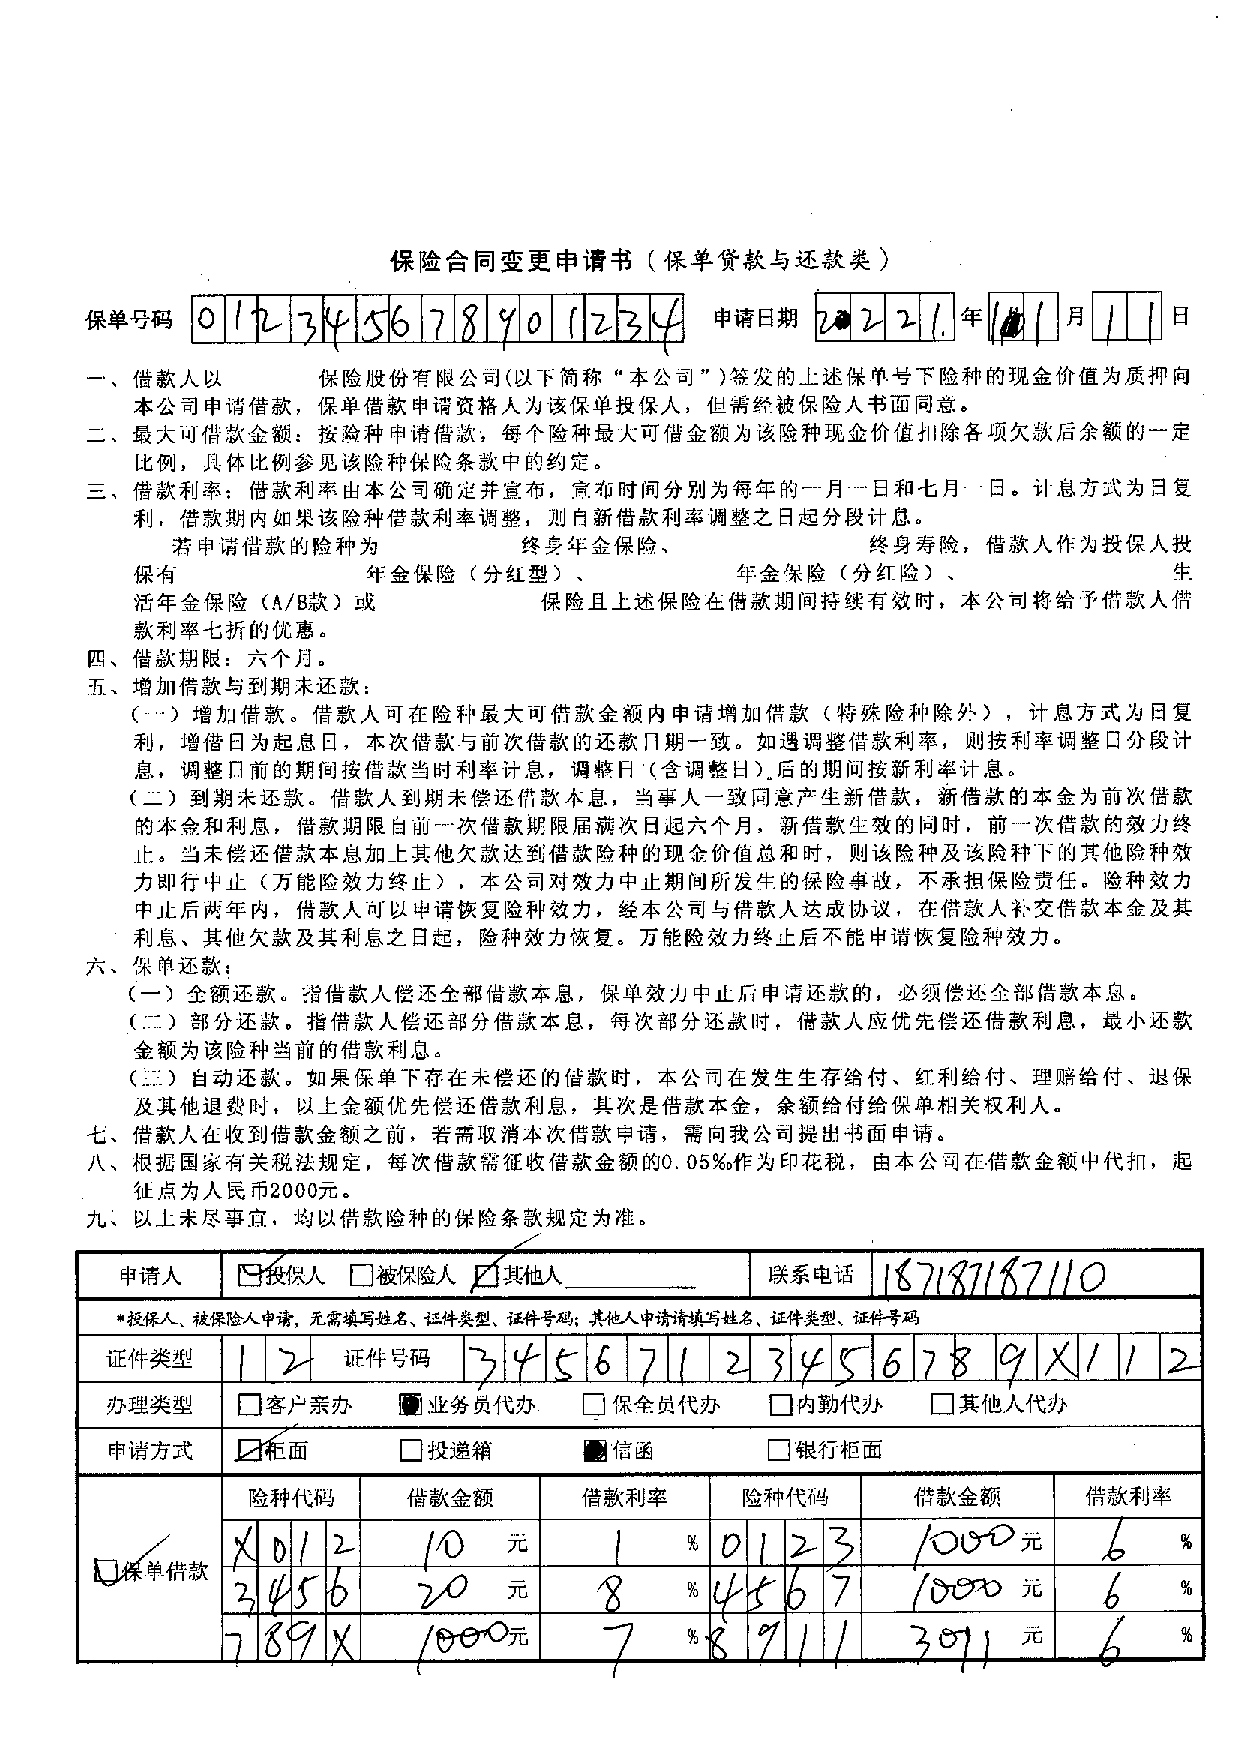 保险合同变更申请书（保单贷款与还款类）
保单号码 012345678901234 申请日期 2 221 年 1 1 月 11 日
一、借款人以 保险股份有限公司(以下简称“本公司”)签发的上述保单号下险种的现金价值为质押向
本公司申请借款，保单借款申请资格人为该保单投保人，但需经被保险人书面同意。
二、最大可借款金额：按险种申请借款，每个险种最大可借金额为该险种现金价值扣除各项欠款后余额的一定
比例，具体比例参见该险种保险条款中的约定。
三、借款利率：借款利率由本公司确定并宣布，宣布时间分别为每年的一月一日和七月一日。计息方式为日复
利，借款期内如果该险种借款利率调整，则自新借款利率调整之日起分段计息。
若申请借款的险种为 终身年金保险、 终身寿险，借款人作为投保人投
保有 年金保险（分红型）、 年金保险（分红险）、 生
活年金保险（A/B款）或 保险且上述保险在借款期间持续有效时，本公司将给予借款人借
款利率七折的优惠。
四、借款期限：六个月。
五、增加借款与到期未还款：
（一）增加借款。借款人可在险种最大可借款金额内申请增加借款（特殊险种除外），计息方式为日复
利，增借日为起息日，本次借款与前次借款的还款日期一致。如遇调整借款利率，则按利率调整日分段计
息，调整日前的期间按借款当时利率计息，调整日（含调整日）后的期间按新利率计息。
（二）到期未还款。借款人到期未偿还借款本息，当事人一致同意产生新借款，新借款的本金为前次借款
的本金和利息，借款期限自前一次借款期限届满次日起六个月，新借款生效的同时，前一次借款的效力终
止。当未偿还借款本息加上其他欠款达到借款险种的现金价值总和时，则该险种及该险种下的其他险种效
力即行中止（万能险效力终止），本公司对效力中止期间所发生的保险事故，不承担保险责任。险种效力
中止后两年内，借款人可以申请恢复险种效力，经本公司与借款人达成协议，在借款人补交借款本金及其
利息、其他欠款及其利息之日起，险种效力恢复。万能险效力终止后不能申请恢复险种效力。
六、保单还款：
（一）全额还款。指借款人偿还全部借款本息，保单效力中止后申请还款的，必须偿还全部借款本息。
（二）部分还款。指借款人偿还部分借款本息，每次部分还款时，借款人应优先偿还借款利息，最小还款
金额为该险种当前的借款利息。
（三）自动还款。如果保单下存在未偿还的借款时，本公司在发生生存给付、红利给付、理赔给付、退保
及其他退费时，以上金额优先偿还借款利息，其次是借款本金，余额给付给保单相关权利人。
七、借款人在收到借款金额之前，若需取消本次借款申请，需向我公司提出书面申请。
八、根据国家有关税法规定，每次借款需征收借款金额的0.05‰作为印花税，由本公司在借款金额中代扣，起
征点为人民币2000元。
九、以上未尽事宜，均以借款险种的保险条款规定为准。
申请人 投保人 被保险人 其他人 联系电话 187187187110
*投保人、被保险人申请，无需填写姓名、证件类型、证件号码；其他人申请请填写姓名、证件类型、证件号码
证件类型 12 证件号码 34567123456789X112
办理类型 客户亲办 业务员代办 保全员代办 内勤代办 其他人代办
申请方式 柜面 投递箱 信函 银行柜面
险种代码 借款金额 借款利率 险种代码 借款金额 借款利率
X012 10 元 1 % 0123 1000 元 6 %
保单借款
3456 20 元 8 % 4567 1000 元 6 %
789X 1000 元 7 % 8911 3071 元 6 %